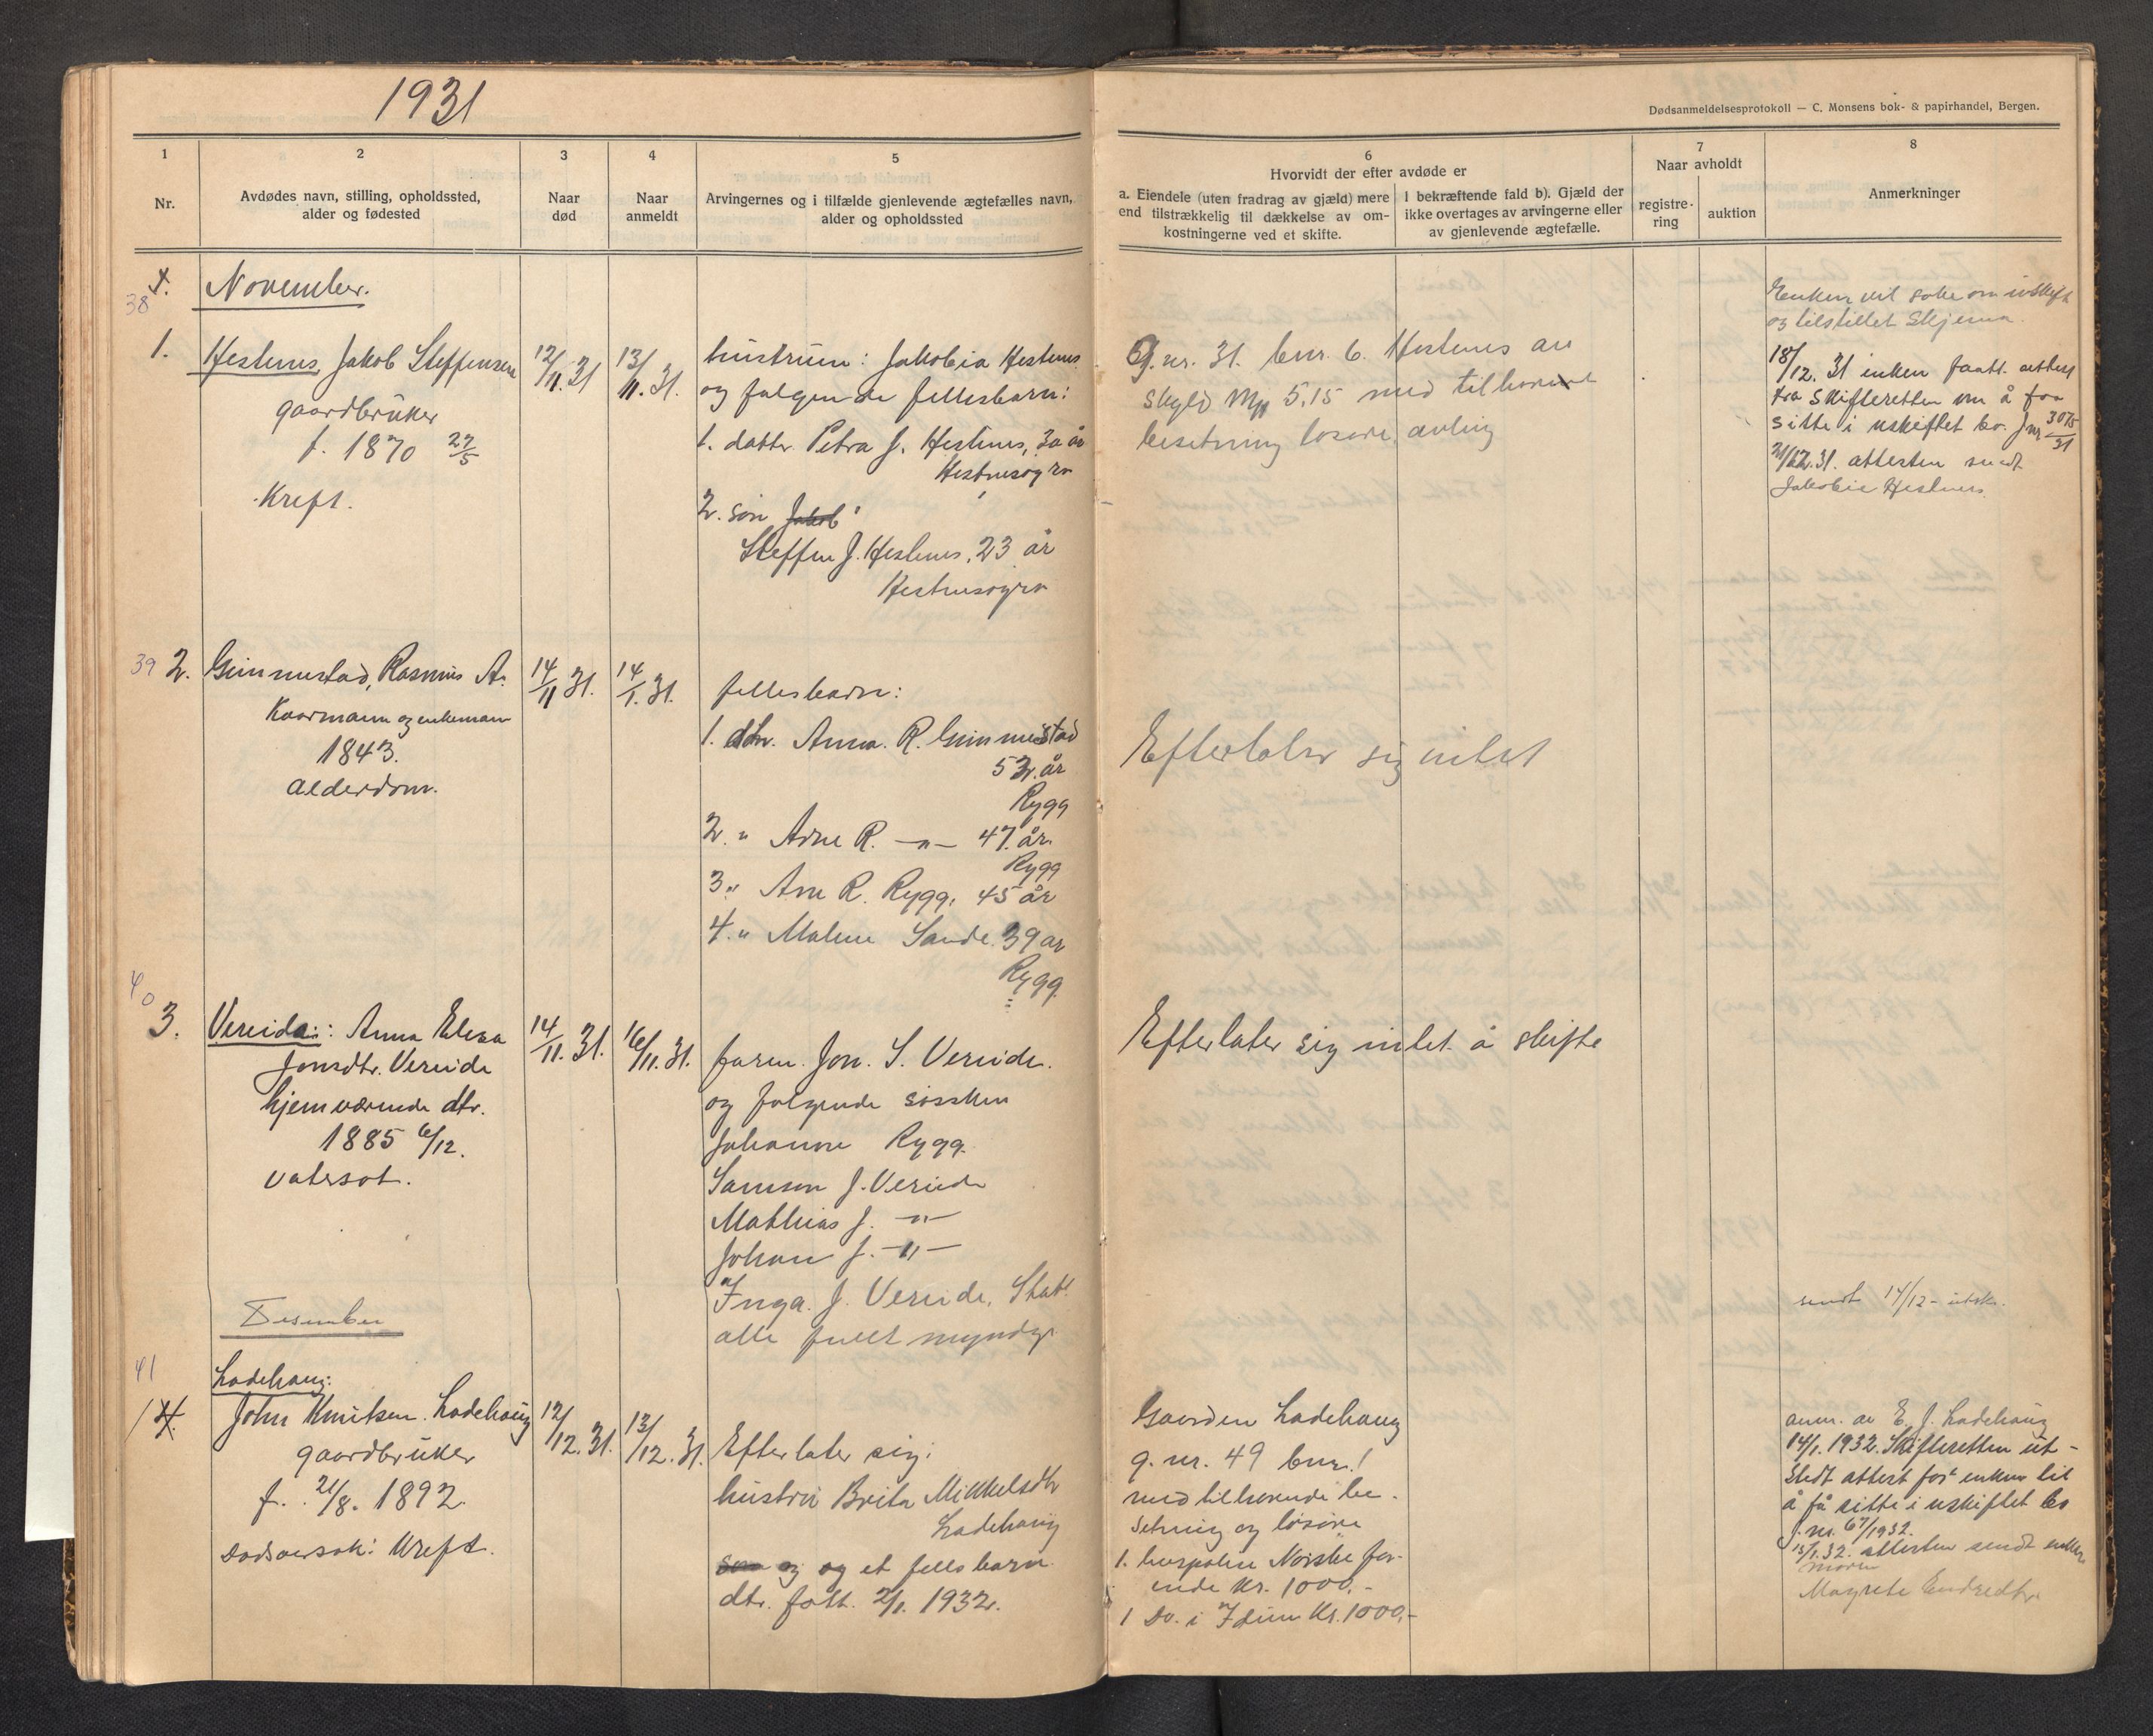 1931
Dødsanmeldelsesprotokoll — C. Monsens bok- & papirhandel, Bergen.
1
2
3
4
5
6
7
8
Nr.
Avdødes navn, stilling, opholdssted,
alder og fødested
Naar
død
Naar
anmeldt
Arvingernes og i tilfælde gjenlevende ægtefælles navn,
alder og opholdssted
Hvorvidt der efter avdøde er
a. Eiendele (uten fradrag av gjæld) mere
end tilstrækkelig til dækkelse av om-
kostningerne ved et skifte.
I bekræftende fald b). Gjæld der
ikke overtages av arvingerne eller
av gjenlevende ægtefælle.
Naar avholdt
registre-
ring
auktion
Anmerkninger
38
November.
1.
Hestenes, Jakob Steffensen
gaardbruker
f. 1870 27/5
Kreft.
12/11.31
13/11.31.
hustruen: Jakobia Hestenes
og følgende fellesbarn:
1. datter Petra J. Hestenes, 30 år
2. søn Jakob
Steffen J. Hestenes, 23 år
G.nr. 31. bnr. 6. Hestenes av
skyld Mrk 5.15 med tilhørende
besetning løsøre, avling
Enken vil søke om uskift
og tilstillet skjema.
18/12.31 enken faatt attest
fra Skifteretten om å faa
sitte i uskiftet bo. Jnr 3075/31
21/12.31. attesten sendt
Jakobie Hestenes.
39 2.
Gimmestad, Rasmus A.
Kaarmann og enkemann
1843.
Alderdom.
14/11 31.
14/1.31.
fellesbarn:
1. dtr. Anna. R. Gimmestad
52 år
Rygg
2. " Arne R. —"— 47. år.
Rygg
3. " Ane R. Rygg, 45 år
4. " Malene Sande. 39 år
Rygg.
Efterlater sig intet
40
3.
Vereide: Anna Elena
Jonsdtr. Vereide
hjemværende dtr.
1885 6/12.
Vatersot.
14/11.31.
16/11.31.
faren. Jon. S. Vereide.
og følgende søsken
Johanne Rygg.
Samson J. Vereide
Mathias J. —"—
Johan J. —"—
Inga. J. Vereide,
alle fullt myndige
Efterlater sig intet å skifte
Desember
sendt 14/12 - utskr.
41
1
Ladehaug:
John Knutsen. Ladehaug
gaardbruker
f. 21/8. 1892.
Dødsaarsak: Kreft.
12/12.31.
13/12.31.
Efterlater sig:
hustru Brita Mikkelsdtr
Ladehaug
og et felles barn
dtr. født. 2/1. 1932.
Gaarden Ladehaug
g. nr. 49 bnr. 1
med tilhørende be-
setning og løsøre
1. livspolise Norske for-
ende Kr. 1000.-
1 Do. i Idun Kr. 1000,-
anm. av E. J. Ladehaug
14/1.1932. Skifteretten ut-
stedt attest for enken til
å få sitte i uskiftet bo
j. nr. 67/1932.
15/1.32. attesten sendt enkens
moren
Magrete Endredtr.